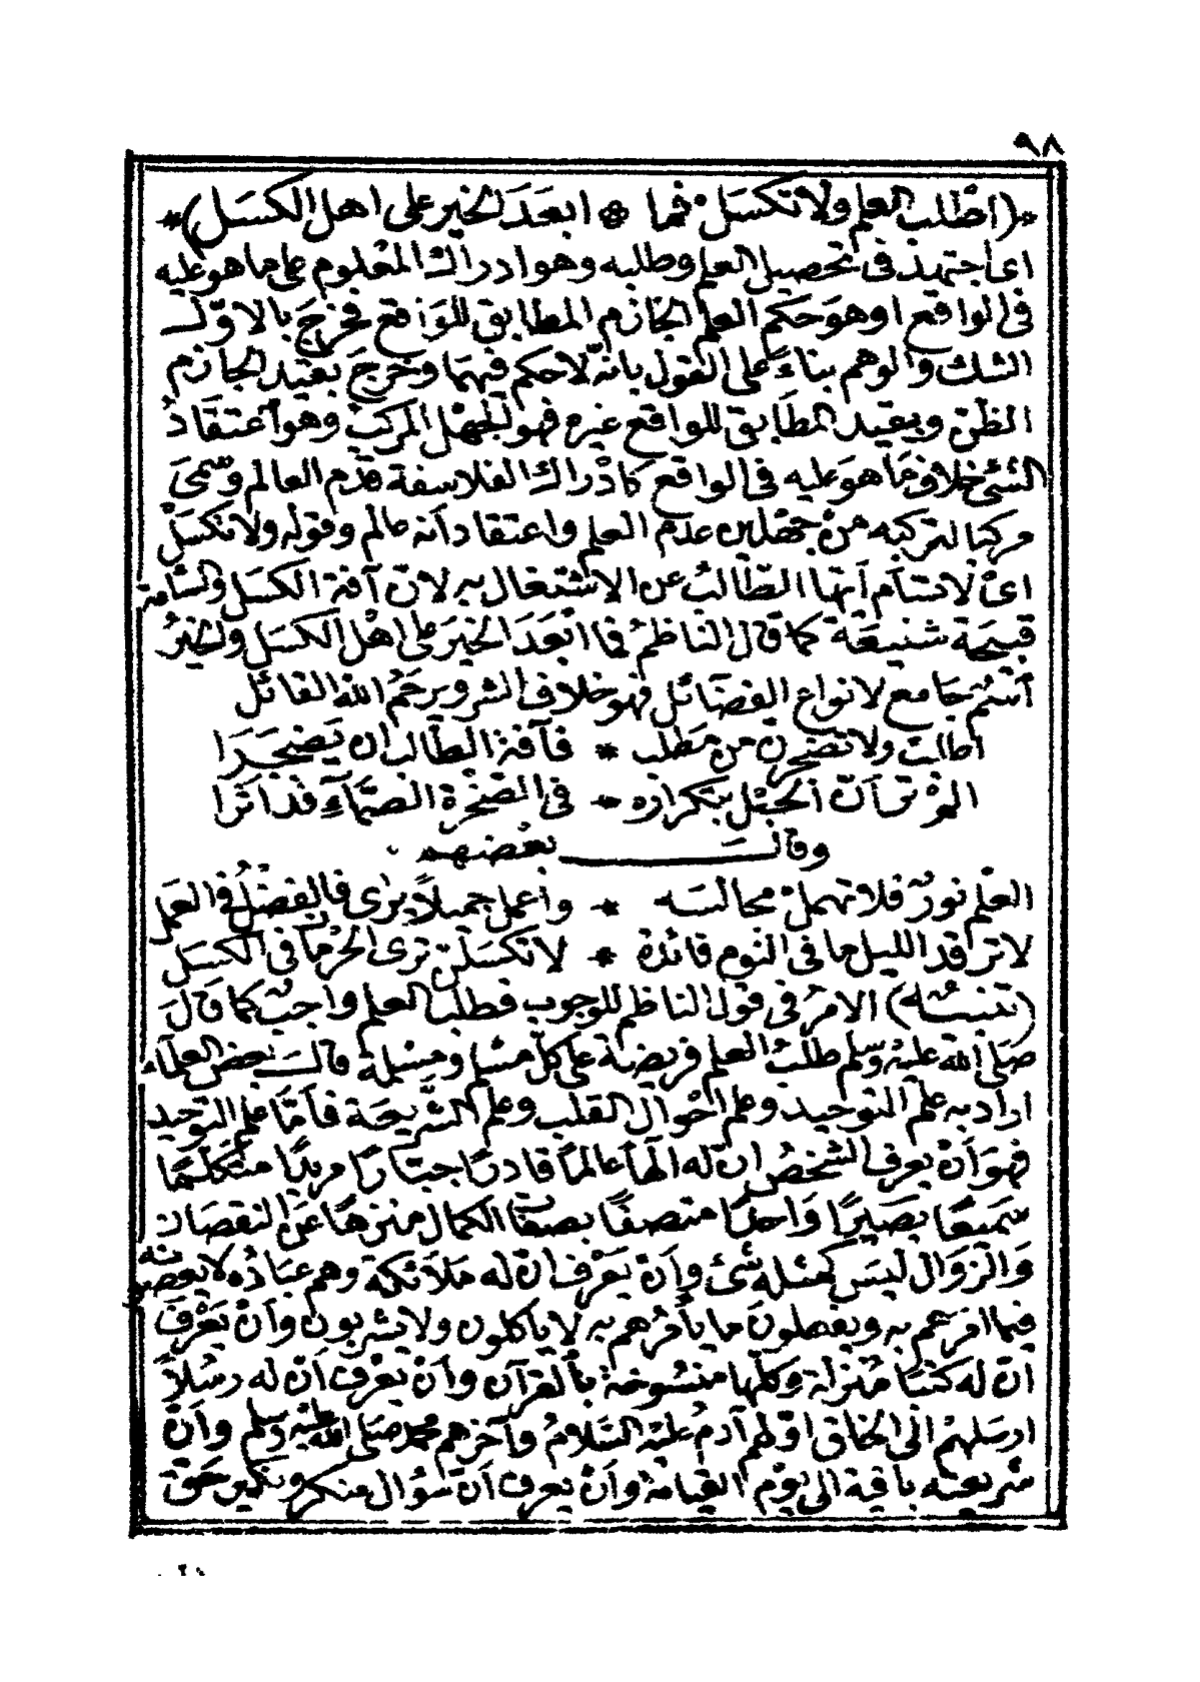 ٩٨
*(اطلب العلم ولا تكسل فما * ابعد الخير على اهل الكسل)*
اى اجتهد فى تحصيل العلم وطلبه وهو ادراك المعلوم على ما هو عليه
فى الواقع او هو حكم العلم الجازم المطابق للواقع فخرج بالاول
الشك والوهم بناء على القول بانه لا حكم فيهما وخرج بقيد الجازم
الظن وبقيد المطابق للواقع غيره فهو الجهل المركب وهو اعتقاد
الشئ خلاف ما هو عليه فى الواقع كادراك الفلاسفة قدم العالم وسمى
مركبا لتركبه من جهلين عدم العلم واعتقاد انه عالم وقوله ولا تكسل
اى لا تسأم ايها الطالب عن الاشتغال به لان آفة الكسل والسامة
قبيحة شنيعة كما قال الناظم فما ابعد الخير على اهل الكسل والخير
اسم جامع لانواع الفضائل فهو خلاف الشر ويرحم الله القائل
اطلب ولا تضجرن من مطلب * فآفة الطالب ان يضجرا
الم تر أن الحبل بتكراره * فى الصخرة الصماء قد اثرا
وقال بعضهم
العلم نور فلا تهمل مجالسه * واعمل جميلا يرى فالفضل فى العمل
لا ترقد الليل ما فى النوم فائدة * لا تكسلن ترى الحرمان فى الكسل
(تنبيه) الامر فى قول الناظم للوجوب فطلب العلم واجب كما قال
صلى الله عليه وسلم طلب العلم فريضة على كل مسلم ومسلمة قال بعض العلماء
اراد به علم التوحيد وعلم احوال القلب وعلم الشريعة فأما علم التوحيد
فهو أن يعرف الشخص ان له الها عالما قادرا جبارا مريدا متكلما
سميعا بصيرا واحدا متصفا بصفات الكمال منزها عن النقصان
والزوال ليس كمثله شئ وأن يعرف ان له ملائكة وهم عباده لا يعصونه
فيما امرهم به ويفعلون ما يأمرهم به لا ياكلون ولا يشربون وأن يعرف
ان له كتبا منزلة وكلها منسوخة بالقرآن وأن يعرف ان له رسلا
ارسلهم الى الخلق اولهم آدم عليه السلام وآخرهم محمد صلى الله عليه وسلم وأن
شريعته باقية الى يوم القيامة وأن يعرف أن سؤال منكر ونكير حق